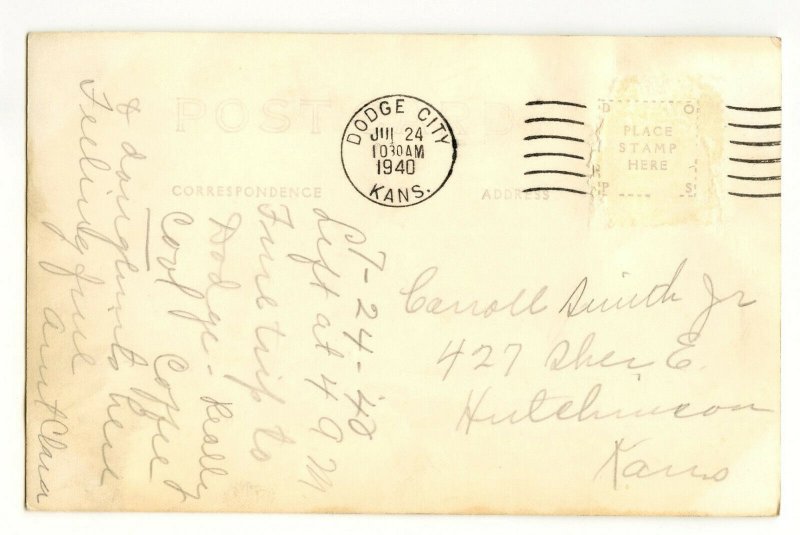 POST CARD
DODGE CITY
JUL 24
10 30 AM
1940
KANS.
D O
PLACE
STAMP
HERE
P S
CORRESPONDENCE
ADDRESS
7-24-40
Left at 4 AM
Fine trip to
Dodge - Really
Cool Coffee &
here
Feeling fine
Aunt Clara
Carroll Smith Jr
427 Sher E.
Hutchinson
Kans